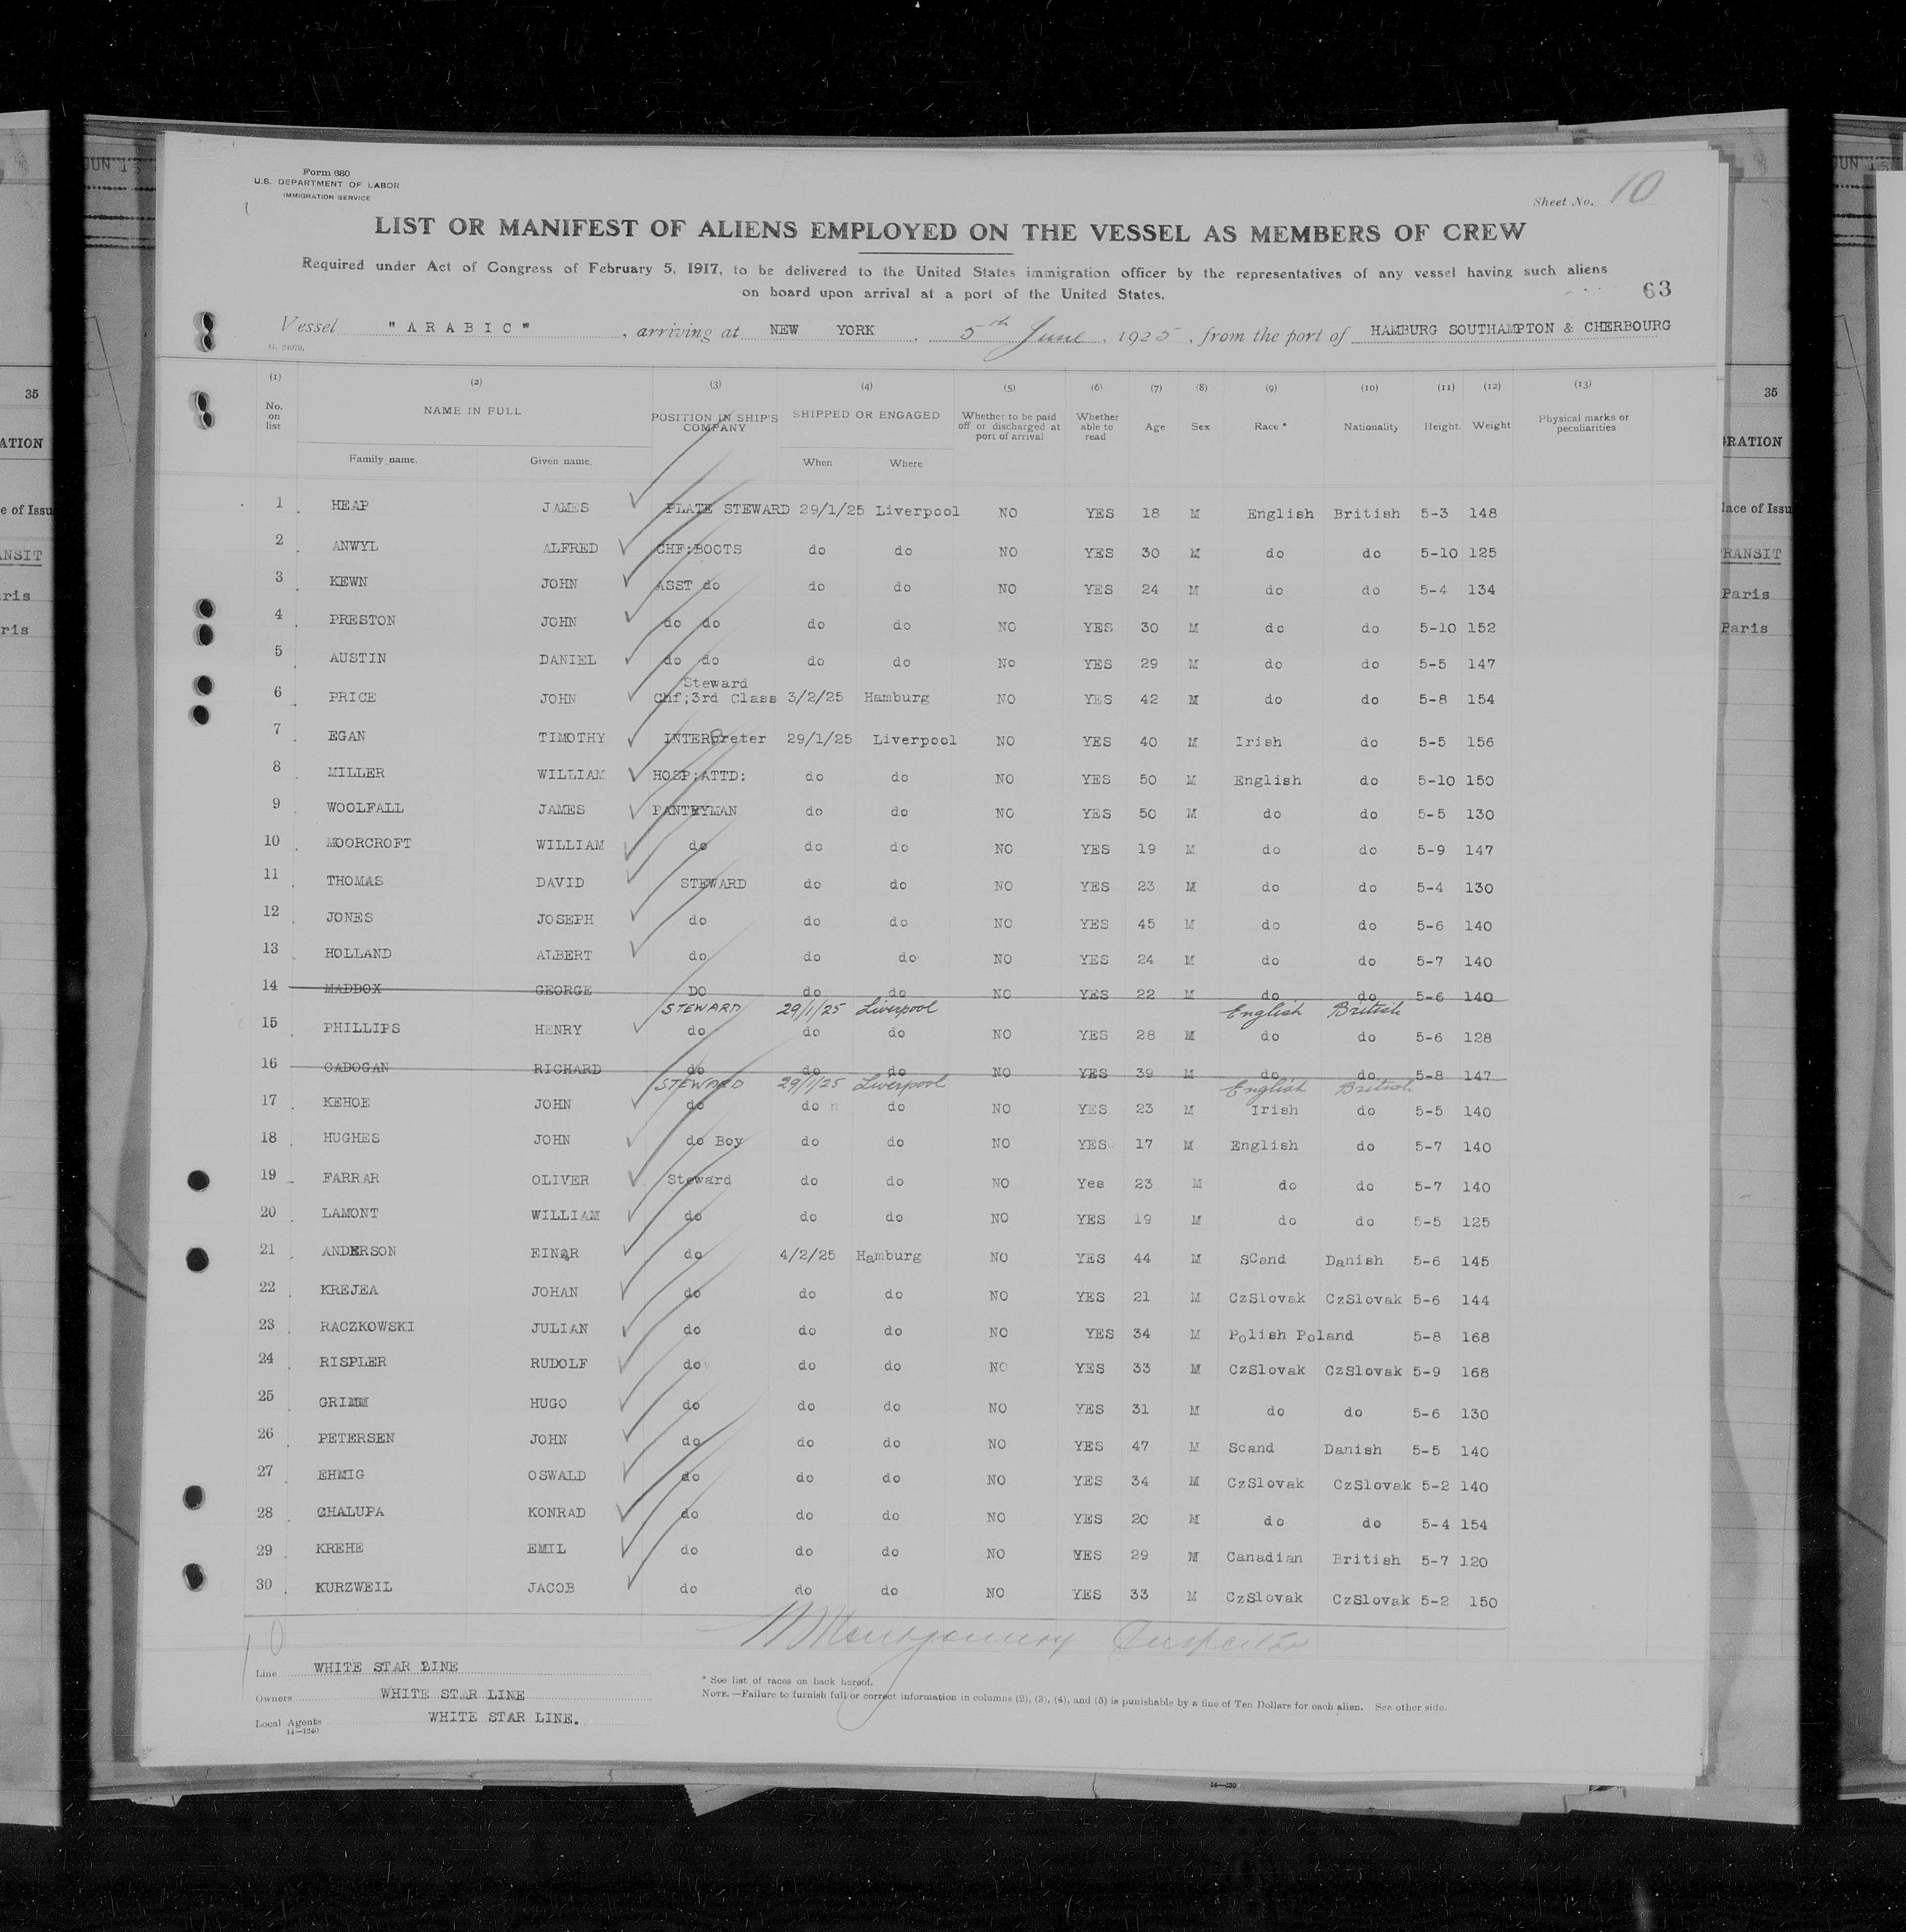 Form 680
U.S. DEPARTMENT OF LABOR
IMMIGRATION SERVICE
Sheet No. 10
LIST OR MANIFEST OF ALIENS EMPLOYED ON THE VESSEL AS MEMBERS OF CREW
Required under Act of Congress of February 5, 1917, to be delivered to the United States immigration officer by the representatives of any vessel having such aliens
on board upon arrival at a port of the United States.
63
Vessel "ARABIC", arriving at NEW YORK, 5th June, 1925, from the port of HAMBURG SOUTHAMPTON & CHERBOURG
G. 24979.
(1) (2) (3) (4) (5) (6) (7) (8) (9) (10) (11) (12) (13)
No. on list NAME IN FULL POSITION IN SHIP'S COMPANY SHIPPED OR ENGAGED Whether to be paid off or discharged at port of arrival Whether able to read Age Sex Race * Nationality Height. Weight Physical marks or peculiarities
Family name. Given name. When Where
1 HEAP JAMES PLATE STEWARD 29/1/25 Liverpool NO YES 18 M English British 5-3 148
2 ANWYL ALFRED CHF;BOOTS do do NO YES 30 M do do 5-10 125
3 KEWN JOHN ASST do do do NO YES 24 M do do 5-4 134
4 PRESTON JOHN do do do do NO YES 30 M do do 5-10 152
5 AUSTIN DANIEL do do do do No YES 29 M do do 5-5 147
Steward
6 PRICE JOHN Chf;3rd Class 3/2/25 Hamburg NO YES 42 M do do 5-8 154
7 EGAN TIMOTHY INTERpreter 29/1/25 Liverpool NO YES 40 M Irish do 5-5 156
8 MILLER WILLIAM HOSP;ATTD: do do NO YES 50 M English do 5-10 150
9 WOOLFALL JAMES PANTRYMAN do do NO YES 50 M do do 5-5 130
10 MOORCROFT WILLIAM do do do NO YES 19 M do do 5-9 147
11 THOMAS DAVID STEWARD do do NO YES 23 M do do 5-4 130
12 JONES JOSEPH do do do NO YES 45 M do do 5-6 140
13 HOLLAND ALBERT do do do NO YES 24 M do do 5-7 140
14 MADDOX GEORGE DO do do NO YES 22 M do do 5-6 140
STEWARD 29/1/25 Liverpool English British
15 PHILLIPS HENRY do do do NO YES 28 M do do 5-6 128
16 CADOGAN RICHARD do do do NO YES 39 M do do 5-8 147
STEWARD 29/1/25 Liverpool English British
17 KEHOE JOHN do do do NO YES 23 M Irish do 5-5 140
18 HUGHES JOHN do Boy do do NO YES 17 M English do 5-7 140
19 FARRAR OLIVER Steward do do NO Yes 23 M do do 5-7 140
20 LAMONT WILLIAM do do do NO YES 19 M do do 5-5 125
21 ANDERSON EINAR do 4/2/25 Hamburg NO YES 44 M SCand Danish 5-6 145
22 KREJEA JOHAN do do do NO YES 21 M CzSlovak CzSlovak 5-6 144
23 RACZKOWSKI JULIAN do do do NO YES 34 M Polish Poland 5-8 168
24 RISPLER RUDOLF do do do NO YES 33 M CzSlovak CzSlovak 5-9 168
25 GRIMM HUGO do do do NO YES 31 M do do 5-6 130
26 PETERSEN JOHN do do do NO YES 47 M Scand Danish 5-5 140
27 EHMIG OSWALD do do do NO YES 34 M CzSlovak CzSlovak 5-2 140
28 CHALUPA KONRAD do do do NO YES 20 M do do 5-4 154
29 KREHE EMIL do do do NO YES 29 M Canadian British 5-7 120
30 KURZWEIL JACOB do do do NO YES 33 M CzSlovak CzSlovak 5-2 150
Montgomery Inspector
10
Line WHITE STAR LINE
Owners WHITE STAR LINE
Local Agents WHITE STAR LINE.
14—1240
* See list of races on back hereof.
NOTE.—Failure to furnish full or correct information in columns (2), (3), (4), and (5) is punishable by a fine of Ten Dollars for each alien. See other side.
JUN 15
35
RATION
lace of Issu
RANSIT
Paris
Paris